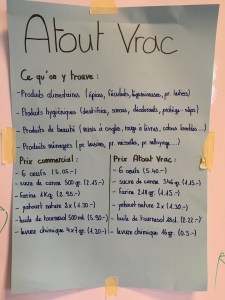 Atout Vrac
Ce qu'on y trouve :
- Produits alimentaires (épices, féculents, légumineuses, pr. laitiers)
- Produits hygiéniques (dentifrice, savons, déodorants, protège-slips)
- Produits de beauté (vernis à ongles, rouge à lèvres, cotons lavables ...)
- Produits ménagers (pr. lessive, pr. vaisselle, pr. nettoyage ...)
Prix commercial :
- 6 oeufs (5.05.-)
- sucre de canne 500 gr. (2.15.-)
- farine 1 Kg (2.95.-)
- yahourt nature 2x (1.30.-)
- huile de tournesol 500 ml (5.90.-)
- levure chimique 4x7 gr (1.20.-)
Prix Atout Vrac :
- 6 oeufs (5.40.-)
- sucre de canne 346 gr (1.55.-)
- farine 218 gr (1.15.-)
- yahourt nature 2x (1.30.-)
- huile de tournesol (2.22.-)
- levure chimique 16 gr (0.5.-)